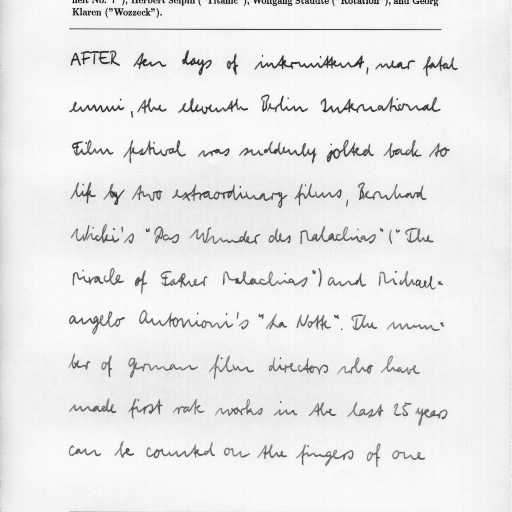 heit No. 7"), Herbert Selpin ("Titanic"), Wolfgang Staudte ("Rotation"), and Georg
Klaren ("Wozzeck").
AFTER ten days of intermittent, near fatal
ennui, the eleventh Berlin International
Film festival was suddenly jolted back to
life by two extraordinary films, Bernhard
Wicki's "Das Wunder des Malachias" ("The
Miracle of Father Malachias") and Michael-
angelo Antonioni's "La Notte". The num-
ber of german film directors who have
made first rate works in the last 25 years
can be counted on the fingers of one